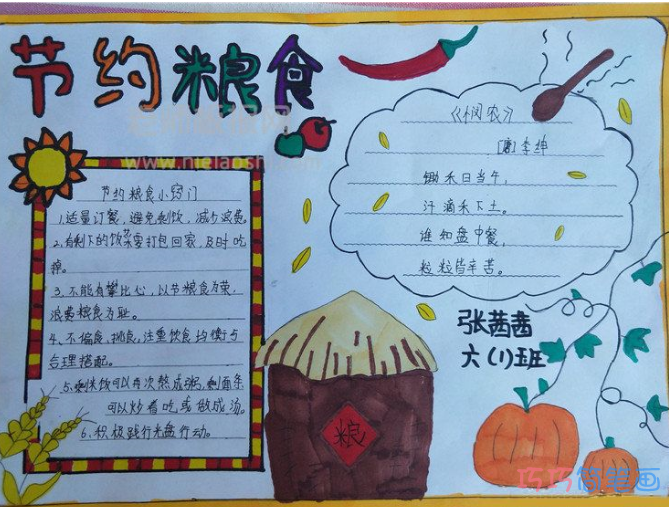 节约粮食
节约粮食小窍门
1.适量订餐，避免剩饭，减少浪费。
2.有剩下的饭菜要打包回家，及时吃
掉。
3.不能有攀比心，以节粮食为荣，
浪费粮食为耻。
4.不偏食，挑食，注重饮食均衡与
合理搭配。
5.剩米饭可以再次熬成粥，剩面条
可以炒着吃或做成汤。
6.积极践行光盘行动。
《悯农》
[唐]李绅
锄禾日当午，
汗滴禾下土。
谁知盘中餐，
粒粒皆辛苦。
张茜茜
六(1)班
粮
巧巧简笔画